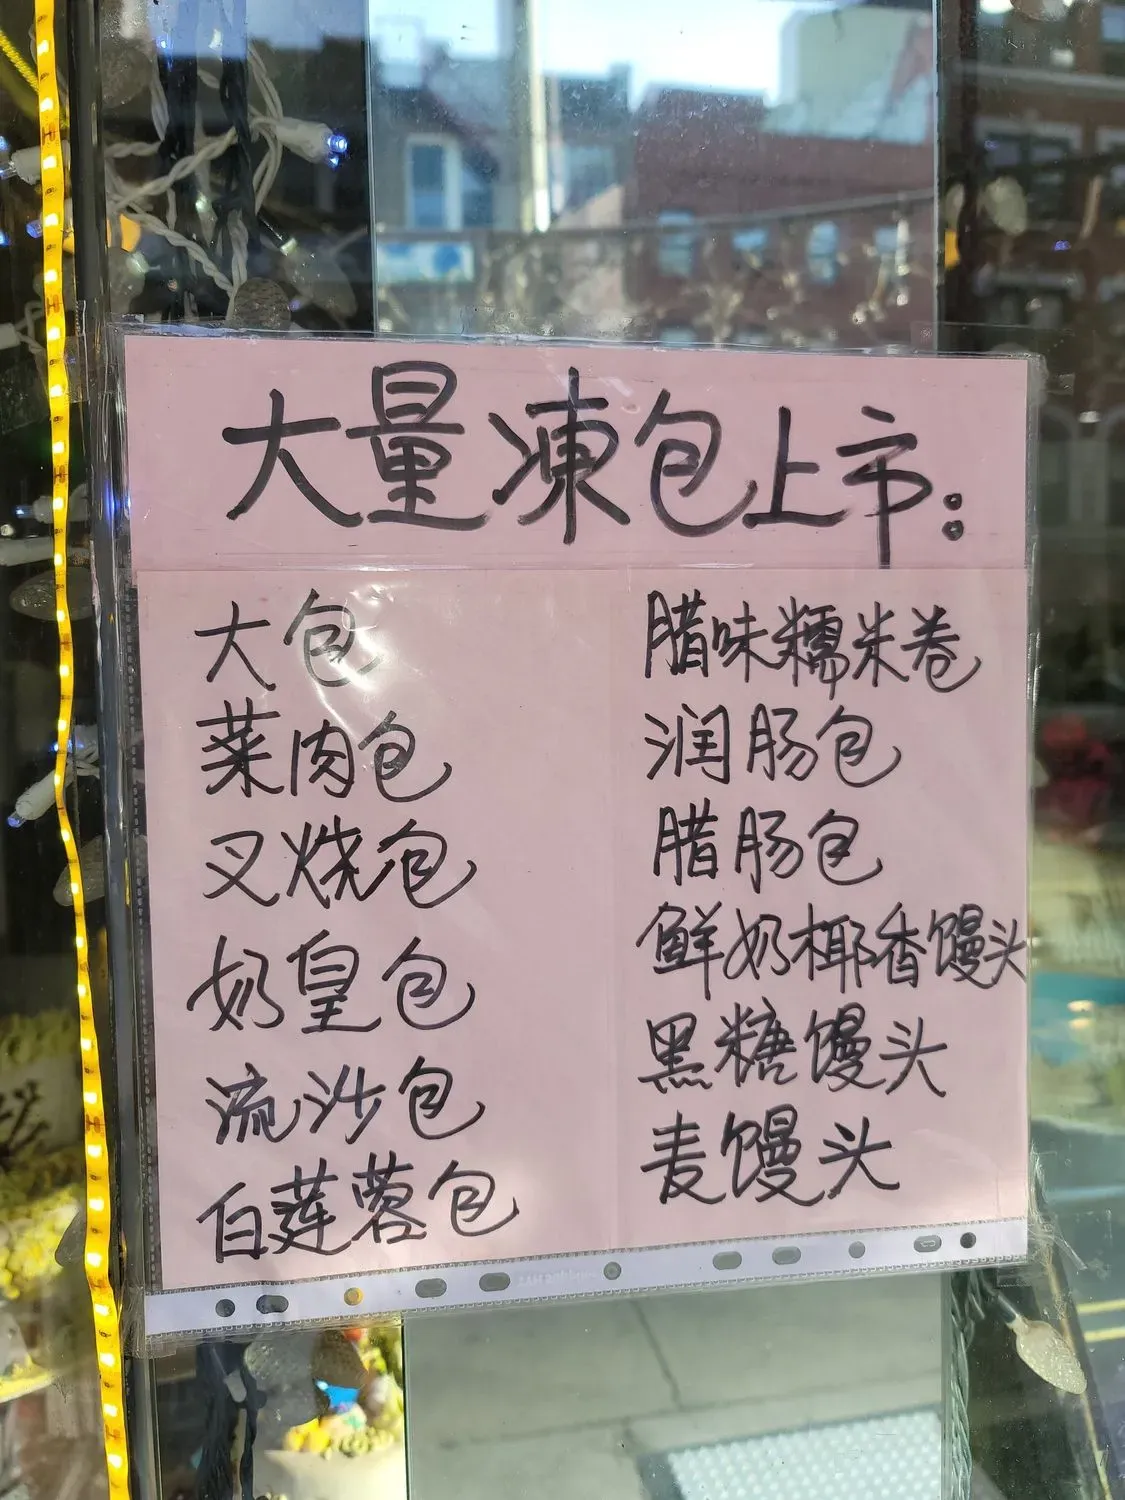 大量凍包上市：
大包
菜肉包
叉烧包
奶皇包
流沙包
白莲蓉包
腊味糯米卷
润肠包
腊肠包
鲜奶椰香馒头
黑糖馒头
麦馒头